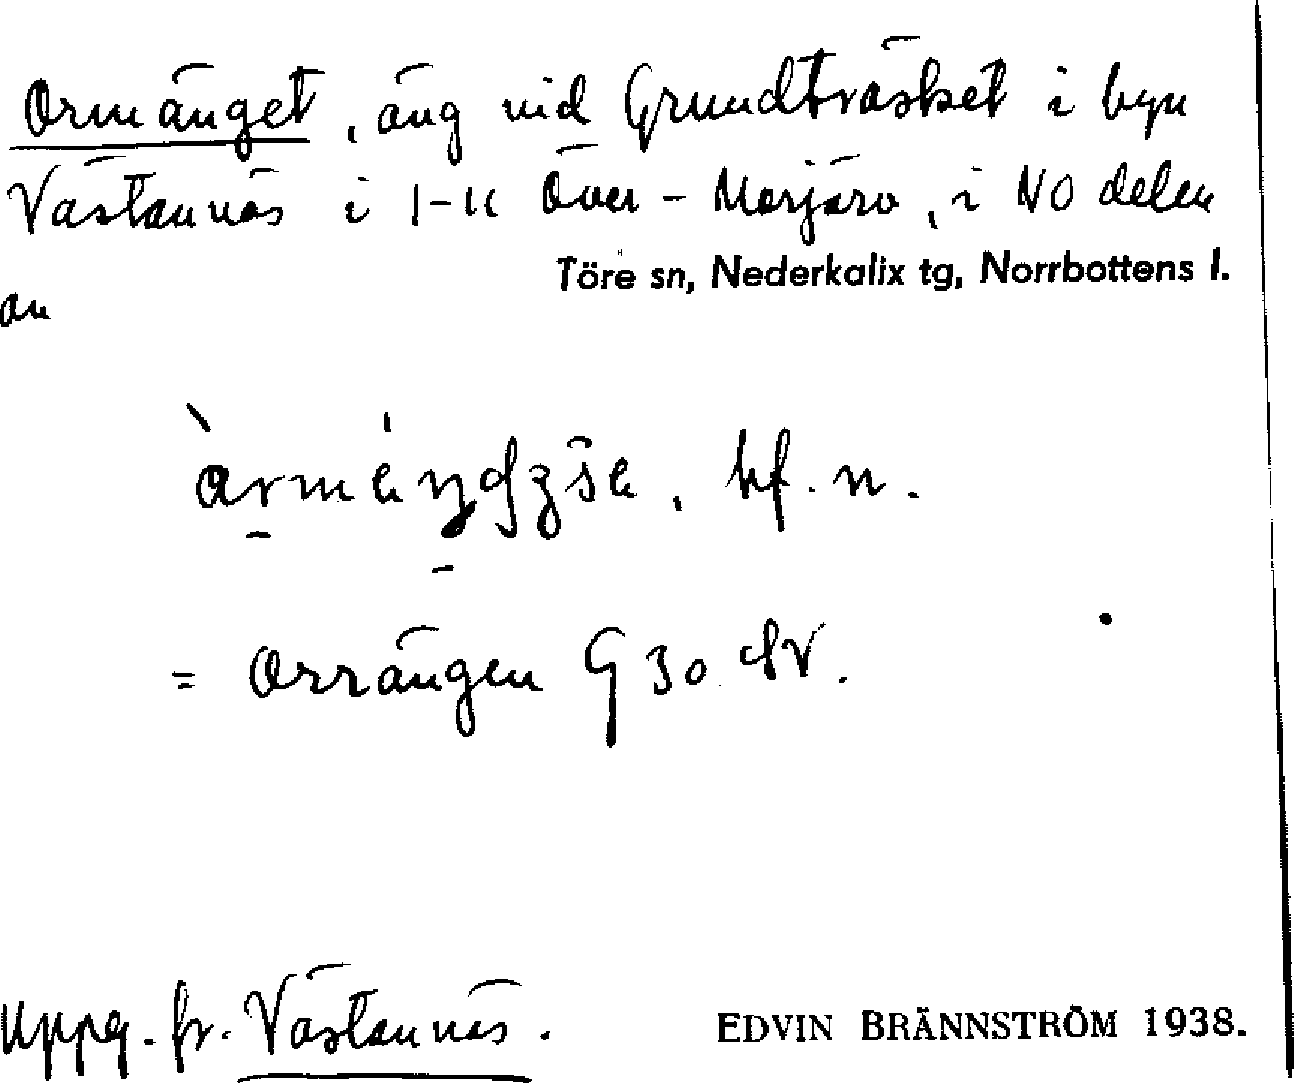 Ormänget, äng vid Grundträsket i byn
Västannäs i J-u Över-Morjärv, i NO delen
Töre sn, Nederkalix tg, Norrbottens l.
av
bf. n.
= Orrängen G 30 dv.
Uppg. fr. Västannäs.
EDVIN BRÄNNSTRÖM 1938.